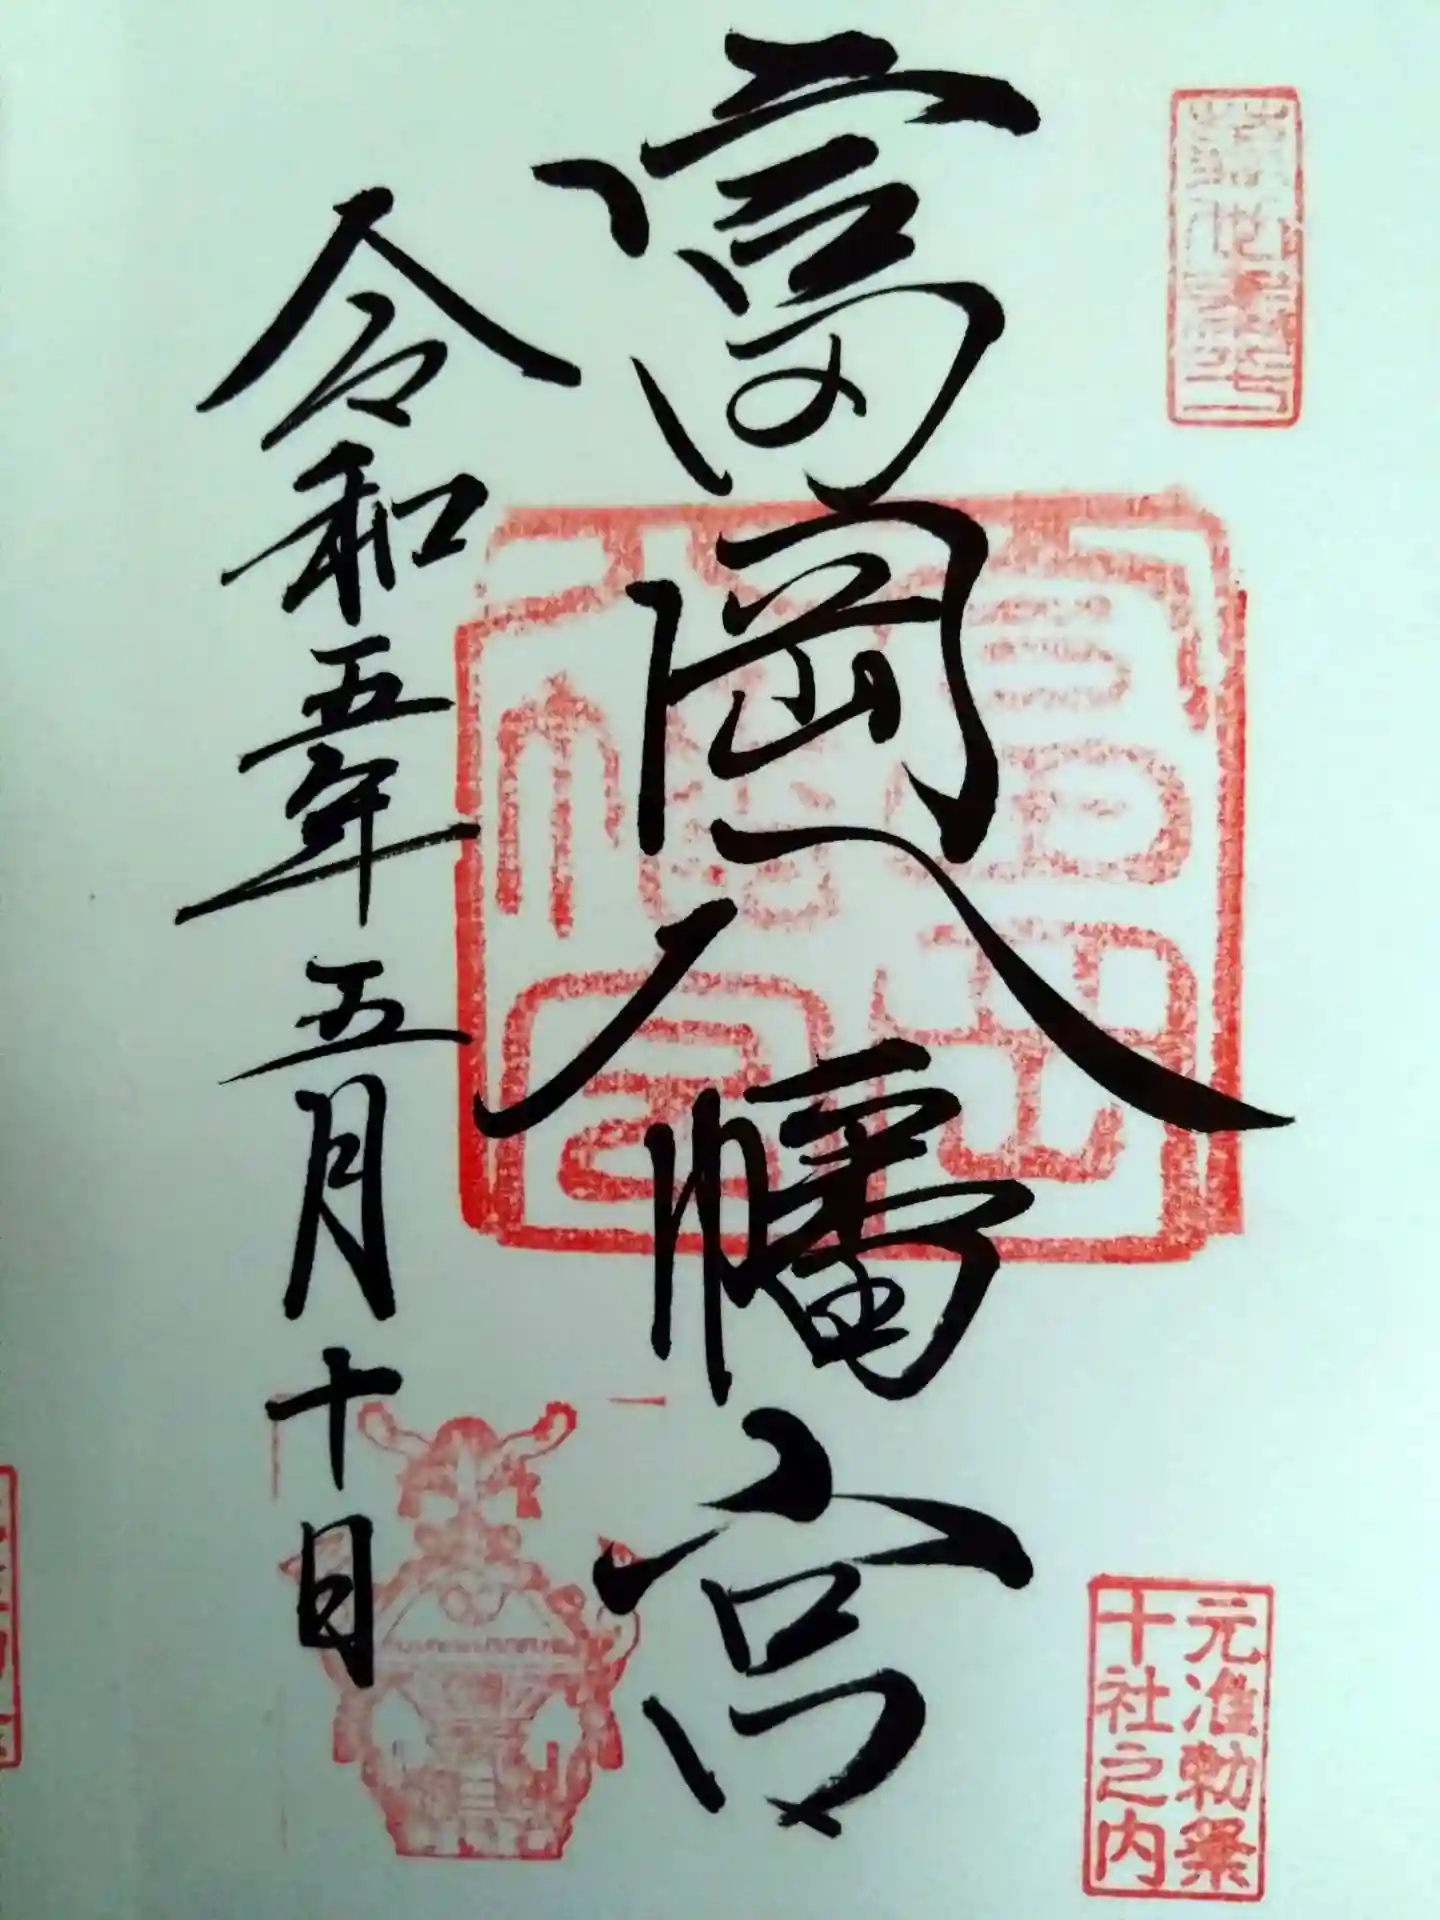 元准勅祭
十社之内
富岡八幡宮
令和五年五月十日